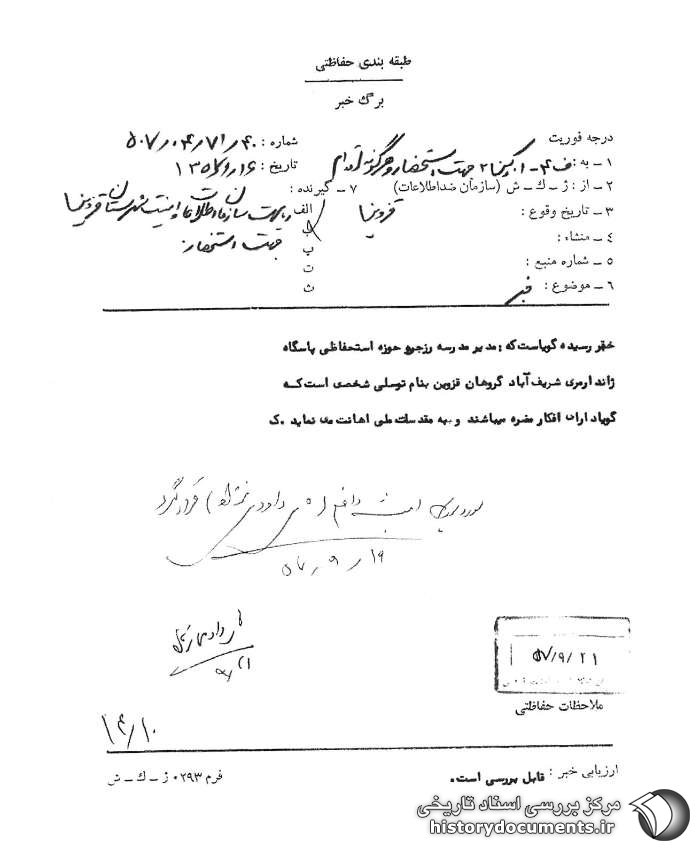 طبقه بندی حفاظتی
برگ خبر
درجه فوریت
شماره : ۵۰۷٫۰۴٫۷۱٫۴۰
۱ ـ به : ف ۴ - ۱ جهت استحضار و هرگونه اقدام
تاریخ : ۱۳۵۷٫۹٫۱۶
۲ ـ از : ژ ـ ك ـ ش (سازمان ضداطلاعات)
۷ ـ گیرنده :
۳ ـ تاریخ وقوع :
الف ریاست سازمان اطلاعات و امنیت شهرستان
ب جهت استحضار
۴ ـ منشاء :
پ
۵ ـ شماره منبع :
ت
۶ ـ موضوع : خبر
ث
خبر رسیده گویاست که : مدیر مدرسه رزجرد حوزه استحفاظی پاسگاه
ژاندارمری شریف آباد گروهان قزوین بنام توسلی شخصی است که
گویا دارای افکار مضره میباشند و به مقدسات ملی اهانت می نماید .ک
قرار گیرد
۱۹ ر ۹ ر ۵۷
۵۷/۹/۲۱
ملاحظات حفاظتی
۱۴/۱۰
ارزیابی خبر : قابل بررسی است .
فرم ۰۲۹۳ ژ ـ ك ـ ش
مرکز بررسی اسناد تاریخی
historydocuments.ir